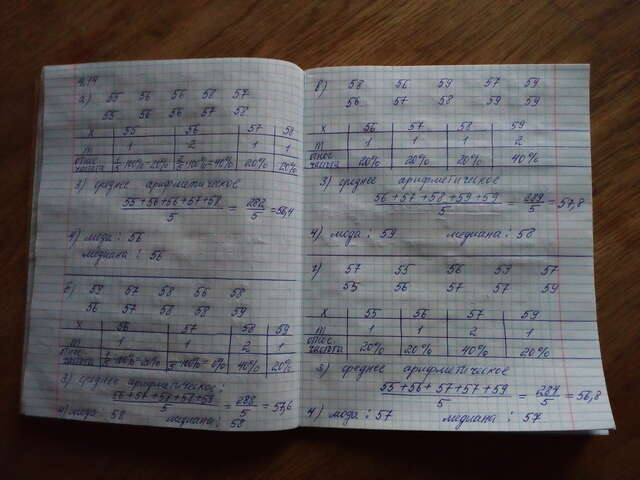 4.14
а) 55 56 56 58 57
55 56 56 57 58
x 55 56 57 58
m 1 2 1 1
относ. частота 1/5·100%=20% 2/5·100%=40% 20% 20%
3) среднее арифметическое
(55+56+56+57+58)/5 = 282/5 = 56,4
4) мода: 56
медиана: 56
б) 59 57 58 56 58
56 57 58 58 59
x 56 57 58 59
m 1 1 2 1
относ. частота 1/5·100%=20% 40% 20%
3) среднее арифметическое:
(56+57+58+58+59)/5 = 288/5 = 57,6
4) мода: 58 медиана: 58
в) 58 56 59 57 59
56 57 58 59 59
x 56 57 58 59
m 1 1 1 2
относ. частота 20% 20% 20% 40%
3) среднее арифметическое
(56+57+58+59+59)/5 = 289/5 = 57,8
4) мода: 59 медиана: 58
г) 57 55 56 59 57
55 56 57 57 59
x 55 56 57 59
m 1 1 2 1
относ. частота 20% 20% 40% 20%
3) среднее арифметическое
(55+56+57+57+59)/5 = 284/5 = 56,8
4) мода: 57 медиана: 57